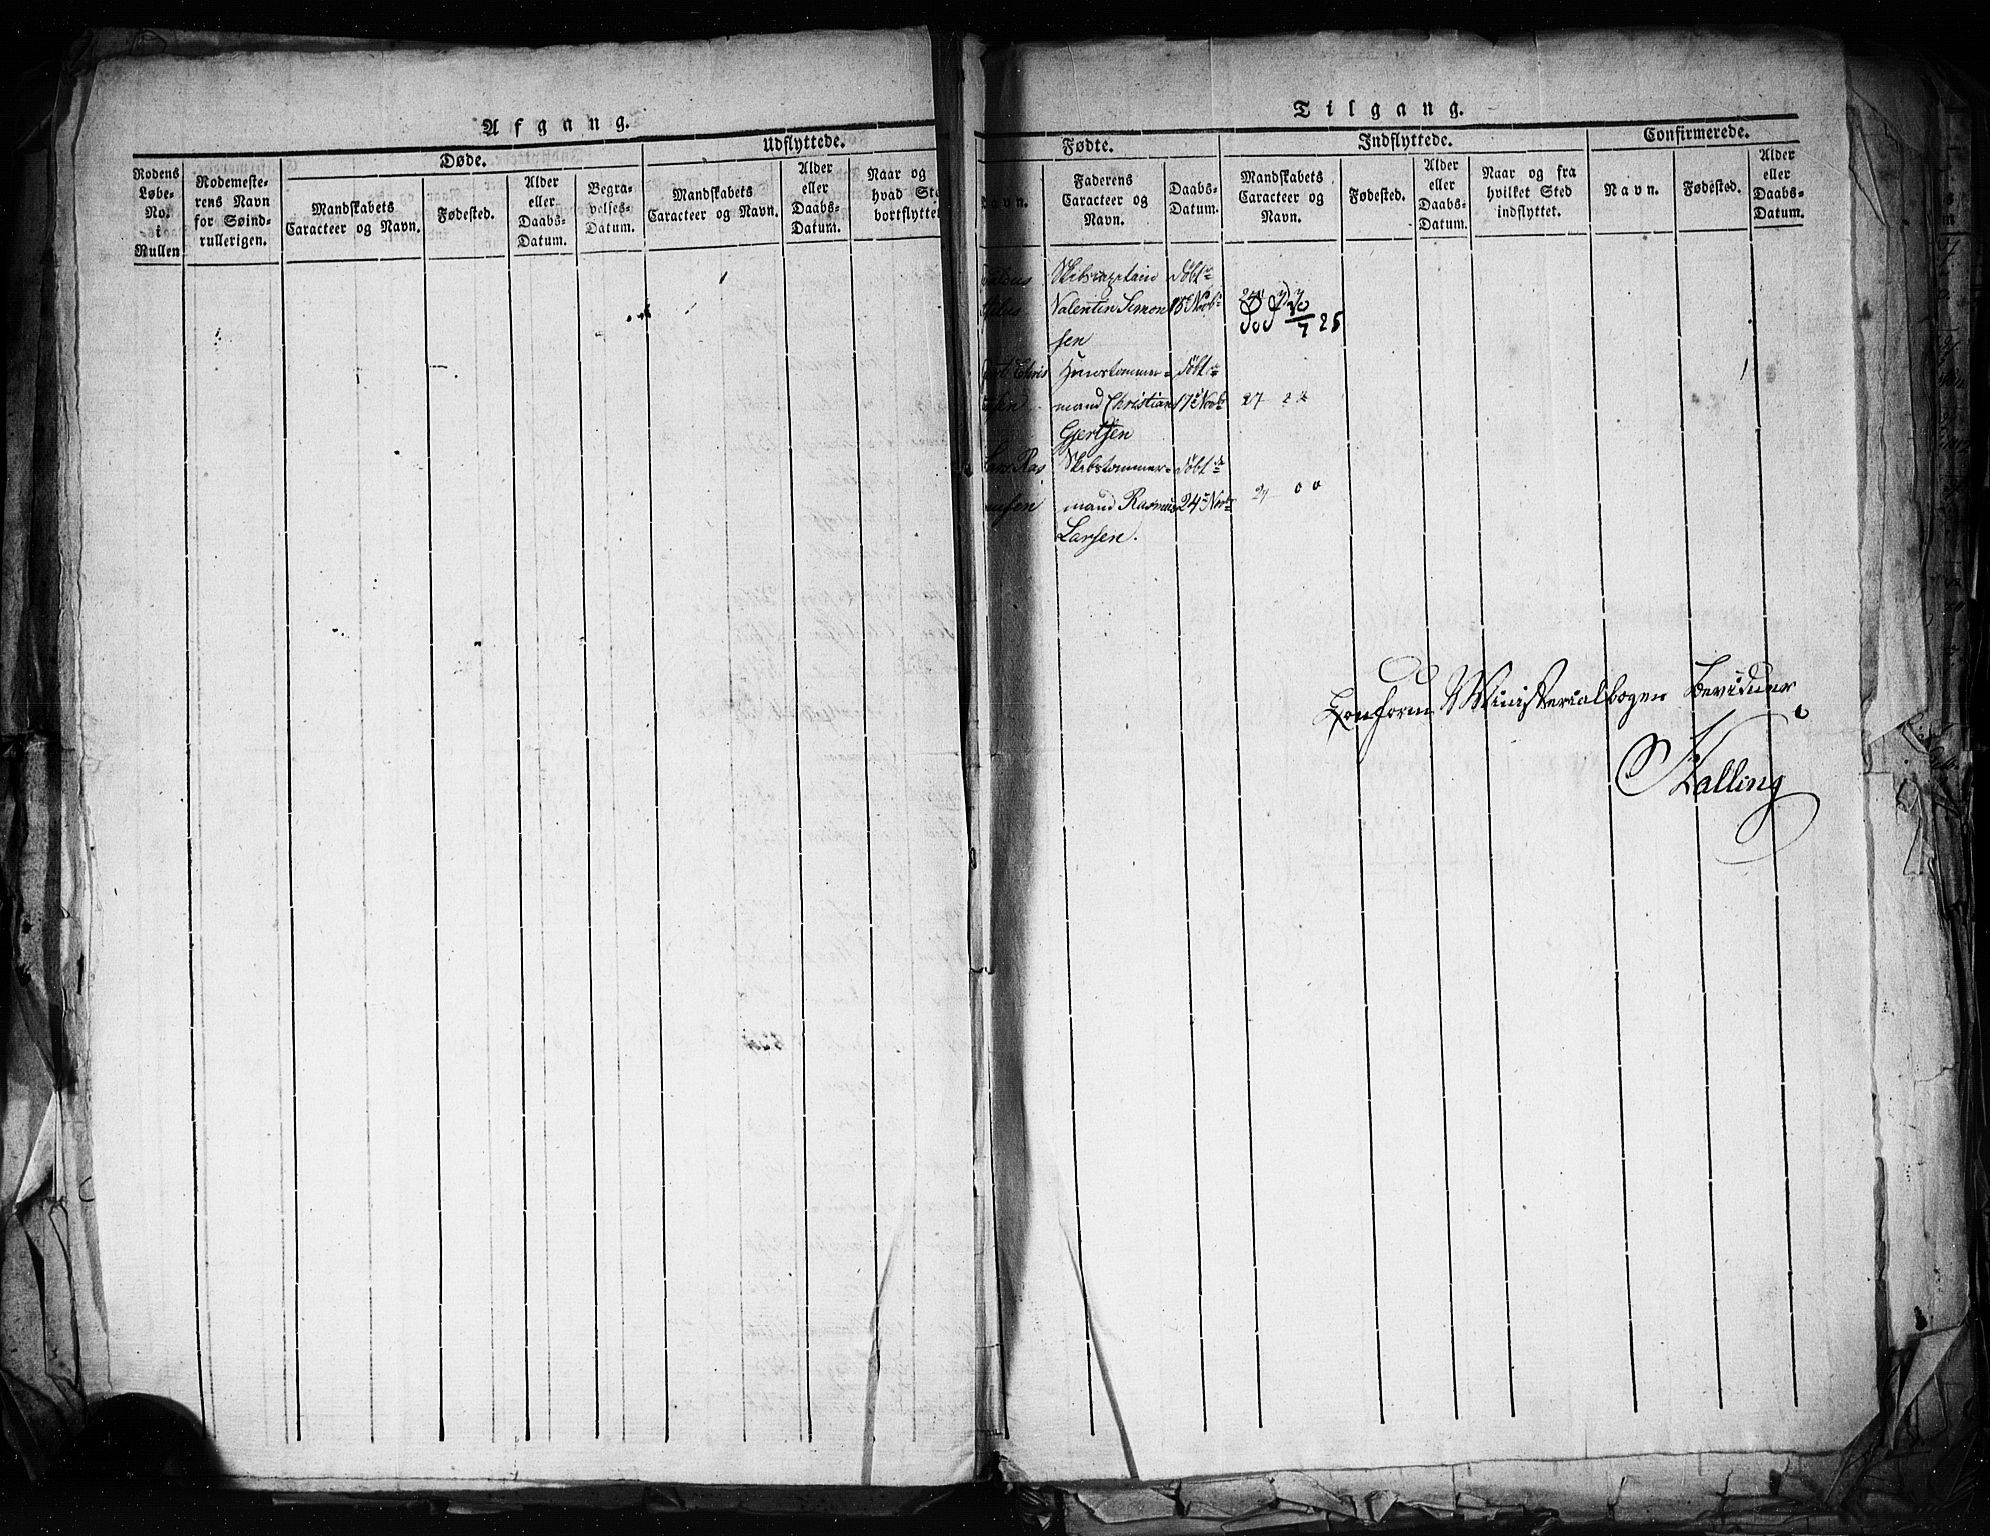 Afgang.
Rodens Løbe-No. i Rullen
Rodemesterens Navn for Søindrullerigen.
Døde.
Mandskabets Caracteer og Navn.
Fødested.
Alder eller Daabs-Datum.
Begravelses-Datum.
Udflyttede.
Mandskabets Caracteer og Navn.
Alder eller Daabs-Datum.
Naar og hvad Sted bortflyttet
Tilgang.
Fødte.
Faderens Caracteer og Navn.
Daabs-Datum.
Indflyttede.
Mandskabets Caracteer og Navn.
Fødested.
Alder eller Daabs-Datum.
Naar og fra hvilket Sted indflyttet.
Confirmerede.
Navn.
Fødested.
Alder eller Daabs-Datum.
Skibscapitain døbt
Valentin Simon 15 Novbr
sen
Chris Huustømmer= døbt
mand Christian 17 Novbr 27
Gjertsen
Ras Skibstømmer= døbt
mand Rasmus 24 Novbr
Larsen.
Conform Ministerialbogen bevidner
Kalling